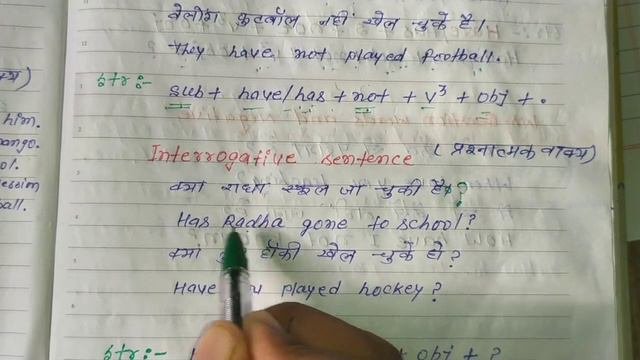 वेलोग फुटबॉल नहीं खेल चुके है।
They have not played football.
str:- sub + have/has + not + v³ + obj + .
Interrogative sentence (प्रश्नात्मक वाक्य)
क्या राधा स्कूल जा चुकी है?
Has Radha gone to school?
क्या हॉकी खेल चुके हो?
Have played hockey?
str:- + obj + ?
him.
ball.